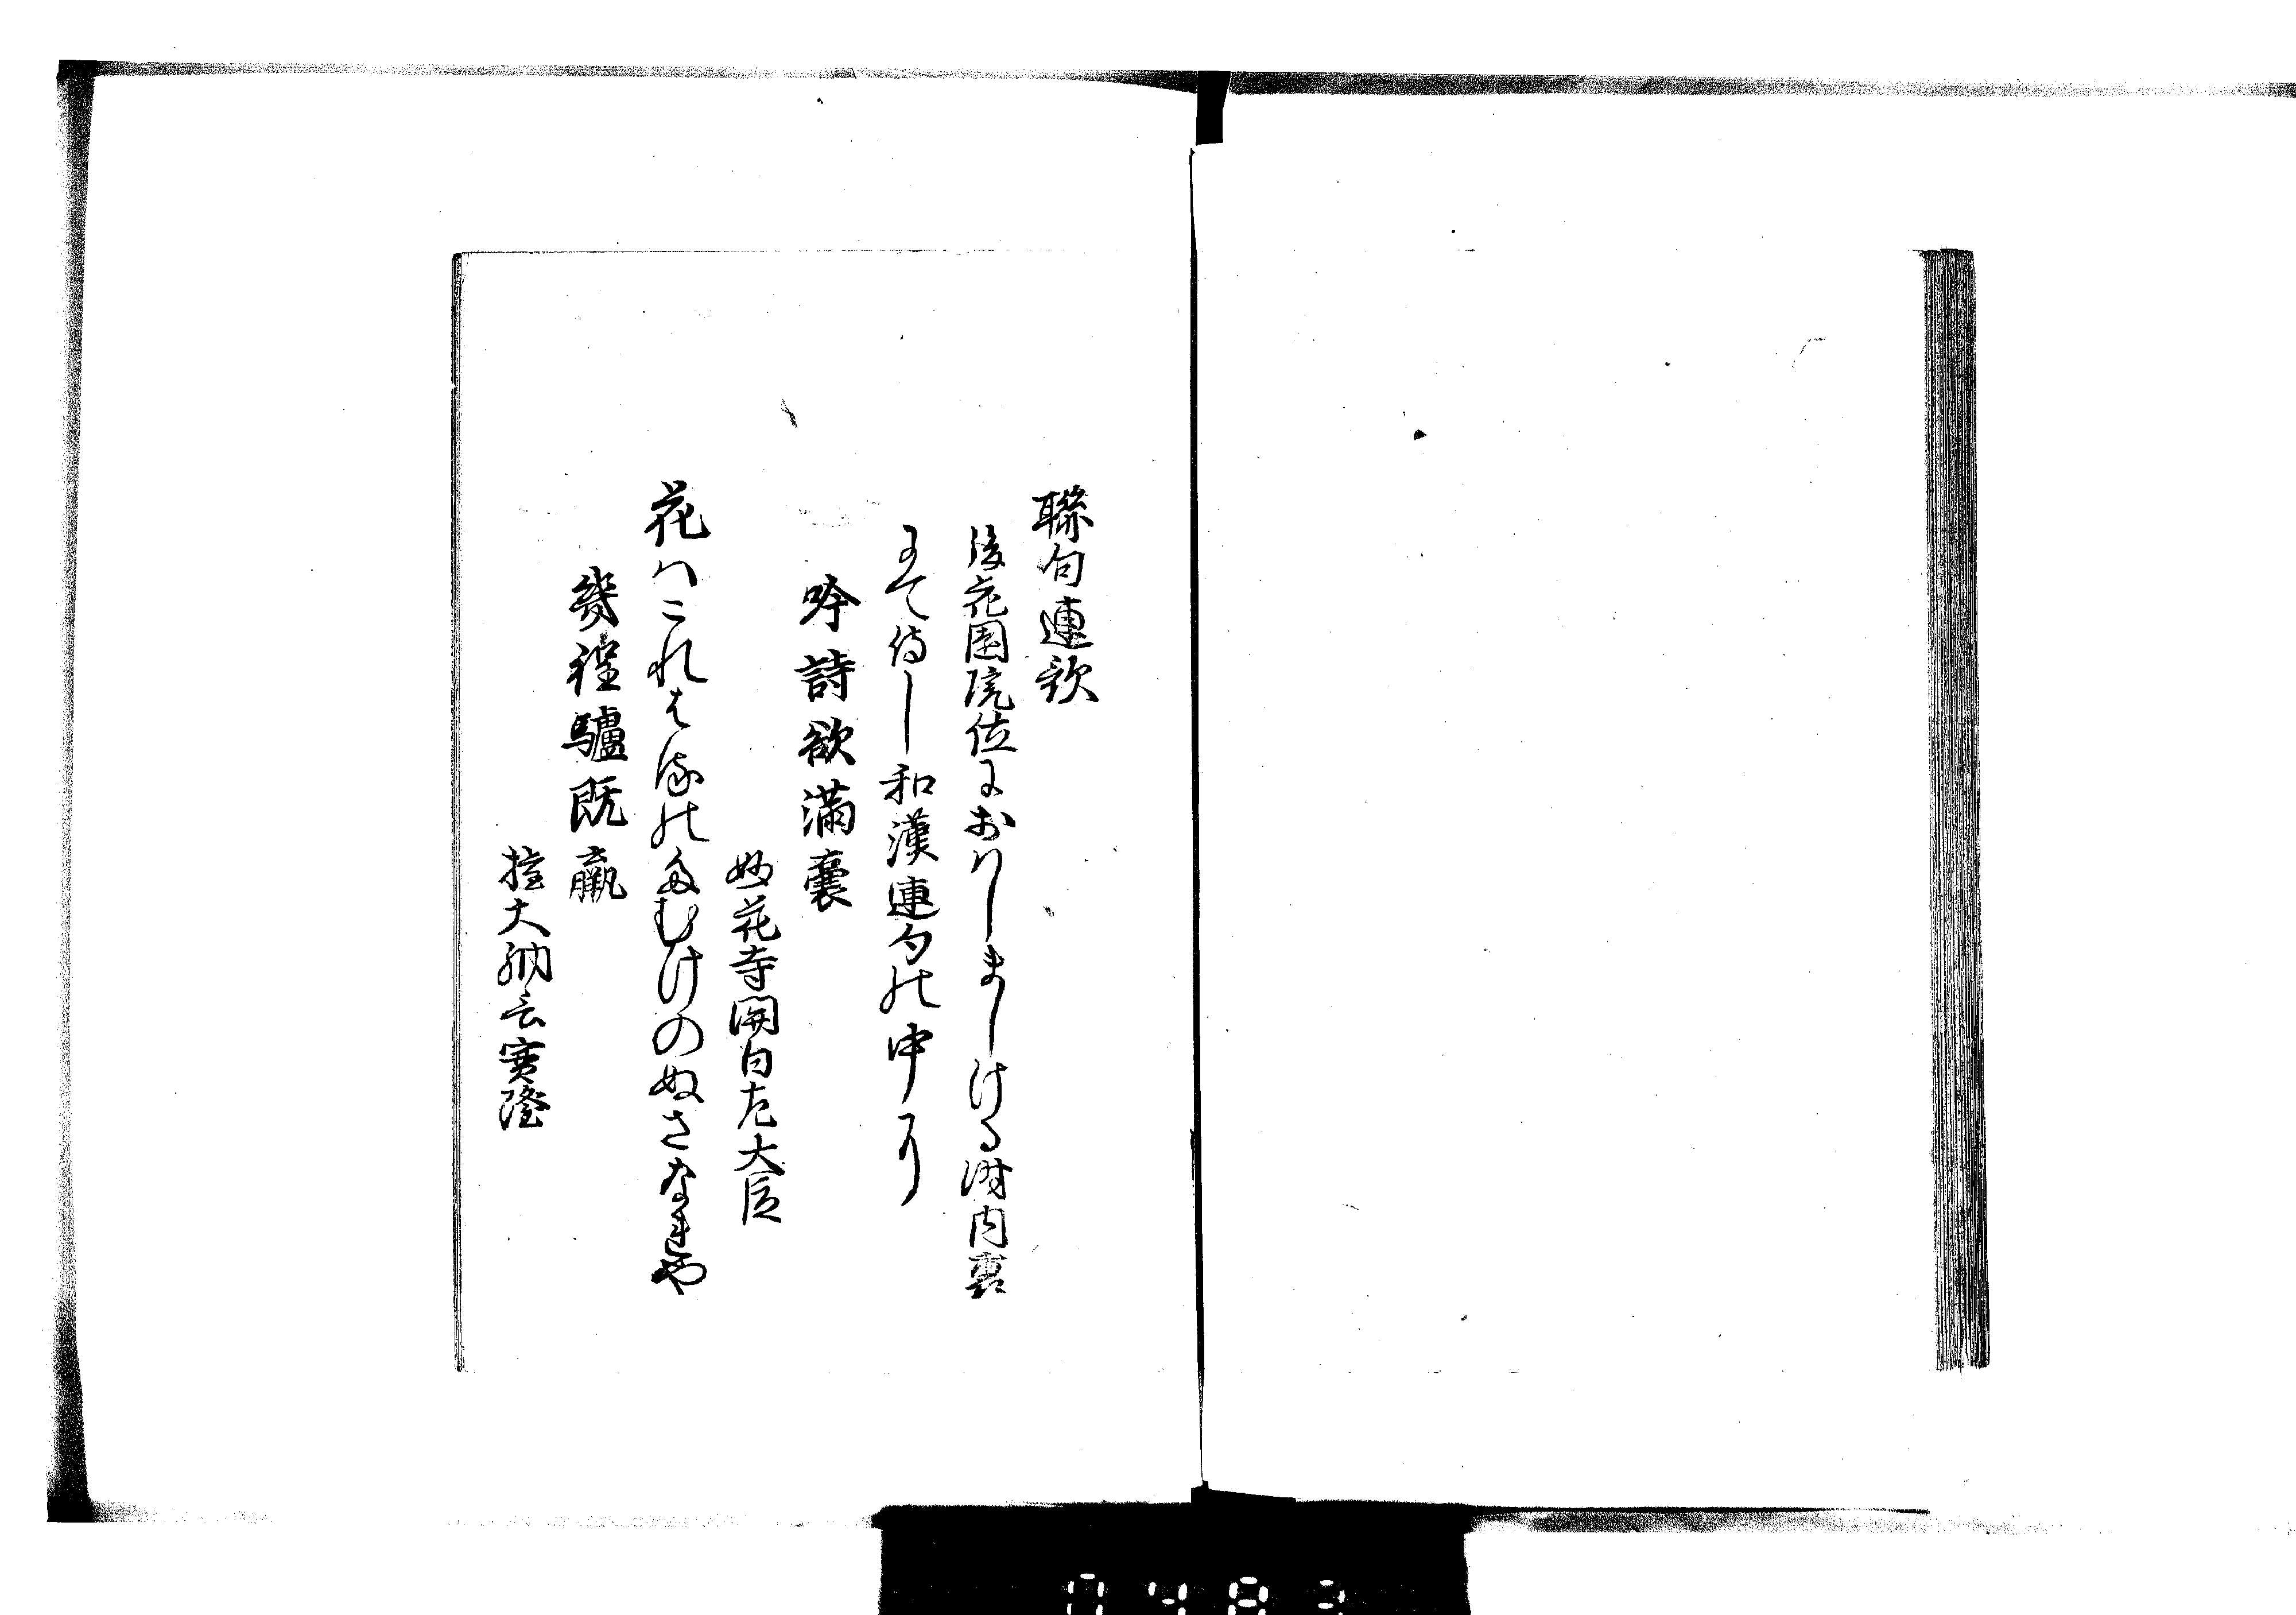 聯句連歌
後花園院位におハしましける時内裏
にて侍し和漢連句の中に
吟詩欲満嚢
妙花寺関白左大臣
花ハこれはるのたむけのぬさなれや
幾程驢既羸
権大納言実隆